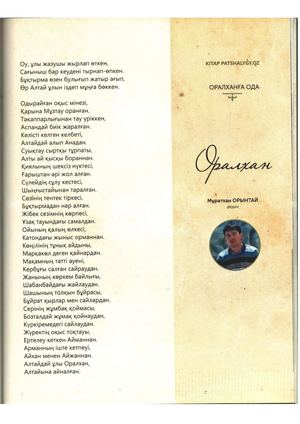 Оу, ұлы жазушы жырлап өткен,
Сағыныш бар кеудені тырнап өткен.
Бұқтырма өзен бұлығып жатыр ағып,
Өр Алтай ұлын іздеп мұңға бөккен.
Одырайған оқыс мінезі,
Қарына Мұзтау оранған.
Тәкаппарлығынан тау үріккен,
Аспандай биік жаралған.
Келісті келген келбеті,
Алтайдай алып Анадан.
Суықтау сыртқы тұрпаты,
Алты ай қысқы бораннан.
Қиялының шексіз нүктесі,
Ғарыштан әрі жол алған.
Сүлейдің сұлу кестесі,
Шыңғыстайынан таралған.
Сөзінің тентек тіркесі,
Бұқтырмадан нәр алған.
Жібек сезімнің көрпесі,
Ұзақ тауындағы самалдан.
Ойының қалың өлкесі,
Катондағы жыныс орманнан.
Көңілінің тұнық айдыны,
Марқакөл деген қайнардан.
Мақамның тәтті әуені,
Кербұғы салған сайраудан,
Жанының көркем байлығы,
Шабанбайдағы жайлаудан.
Шашының толқын бұйрасы,
Бұйрат қырлар мен сайлардан.
Серінің жұмбақ қоймасы,
Бозталдай жұмақ қойнаудан,
Күркіремедегі сайлаудан.
Жүректің оқыс тоқтауы,
Ертелеу кеткен Айманнан.
Арманның іште кетпеуі,
Айхан менен Айжаннан.
Алтайдай ұлы Оралхан,
Алтайына айналған.
KITAP PATSHALYǴY.QZ
ОРАЛХАНҒА ОДА
Оралхан
Мұратхан ОРЫНТАЙ
ақын